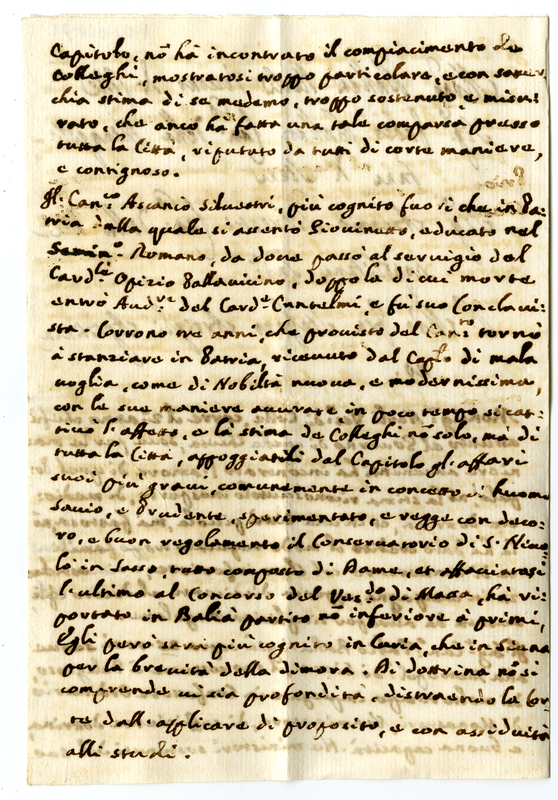 Capitolo, nõ hà incontrato il compiacimento de
Colleghi, mostratosi troppo particolare, e con sover
chia stima di se medemo, troppo sostenuto e misu-
rato, che anco hà fatta una tale comparsa presso
tutta la Città, riputato da tutti di corte maniere,
e contignoso.
Il Can.co Ascanio Silvestri, più cognito fuori che in Pa-
tria dalla quale si assentò Giovinetto, educato nel
Semin.o Romano, da dove passò al servigio del
Card.le Opizio Pallavicino, doppo la di cui morte
entrò Aud.re del Card.e Cantelmi, e fù suo Conclavi-
sta. Corrono tre anni, che provisto del Can.to tornò
à stanziare in Patria, ricevuto dal Caplo di mala
voglia, come di Nobiltà nuova, e modernissima,
con le sue maniere accurate in poco tempo si cat-
tivò l'affetto, e la stima de Colleghi nõ solo, mà di
tutta la Città, appoggiatili dal Capitolo gl'affari
suoi più gravi, comunemente in concetto di huomo
savio, e Prudente, sperimentato, e regge con deco-
ro, e buon regolamento il Conservatorio di S. Nico-
lò in Sasso, tutto composto di Dame, et affacciatosi
l'ultimo al Concorso del Ves.do di Massa, hà ri-
portato in Balìa partito nõ inferiore à primi,
Egli però sarà più cognito in Curia, che in Siena
per la brevità della dimora. Di dottrina nõ si
comprende vi sia profondità, distraendo la Cor-
te dall'applicare di proposito, e con assiduità
alli studi.